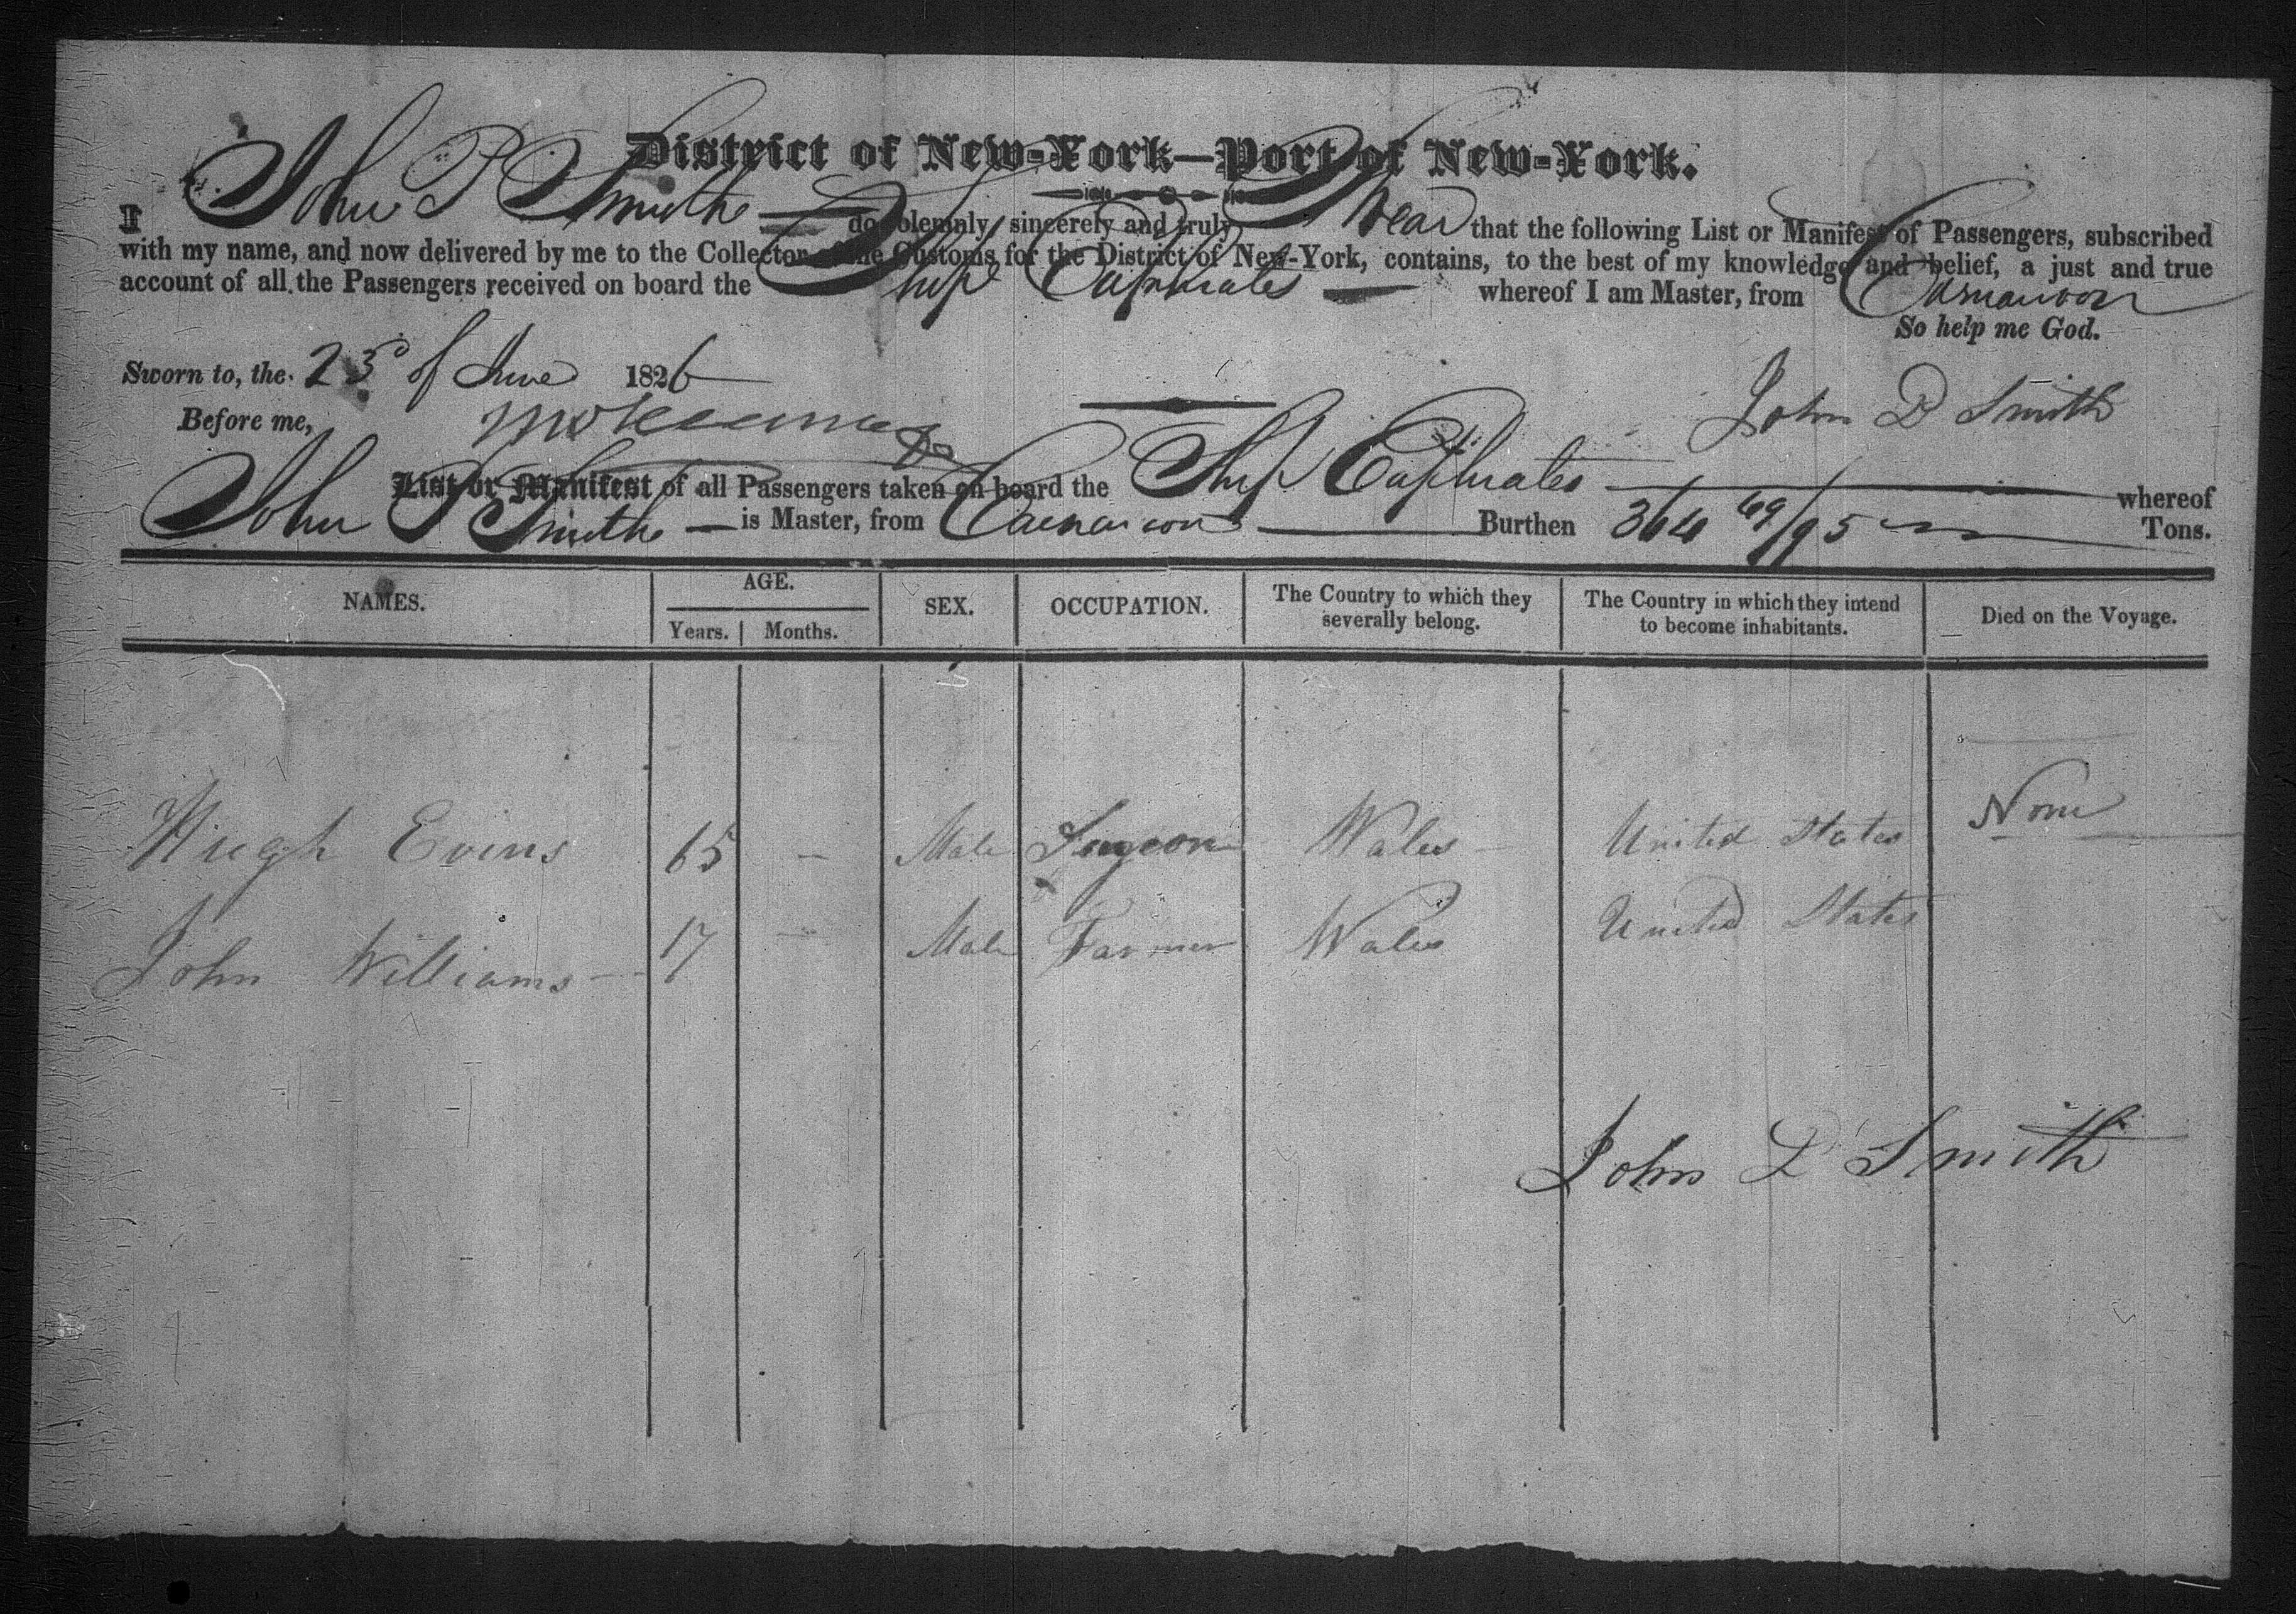 District of New-York—Port of New-York.
I John P Smith — do solemnly, sincerely and truly Swear that the following List or Manifest of Passengers, subscribed
with my name, and now delivered by me to the Collector of the Customs for the District of New-York, contains, to the best of my knowledge and belief, a just and true
account of all the Passengers received on board the Ship Euphrates — whereof I am Master, from Carnarvon
So help me God.
Sworn to, the 23d of June 1826
Before me,
John D Smith
List or Manifest of all Passengers taken on board the Ship Euphrates — whereof
John P Smith — is Master, from Carnarvon — Burthen 364 69/95 Tons.
NAMES. AGE. SEX. OCCUPATION. The Country to which they severally belong. The Country in which they intend to become inhabitants. Died on the Voyage.
Years. Months.
Hugh Evins 65 — Male Surgeon Wales — United States None
John Williams — 17 — Male Farmer Wales United States
John D Smith